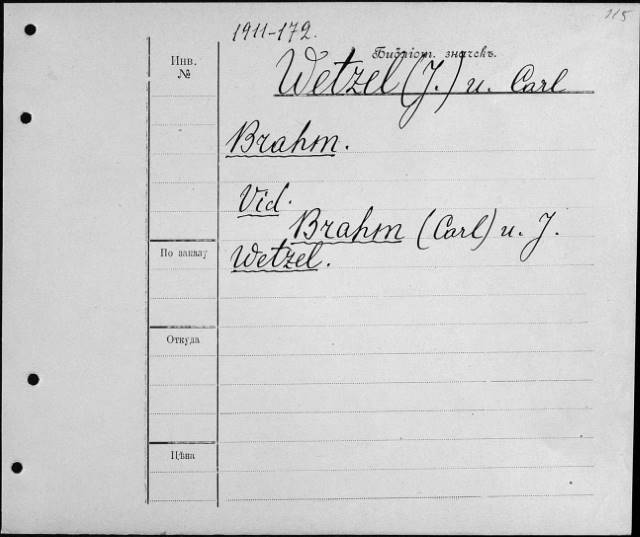 115
1911-172.
Библіот. значекъ.
Инв.
№
Wetzel (J.) u. Carl
Brahm.
Vid.
Brahm (Carl) u. J.
Wetzel.
По заказу
Откуда
Цѣна